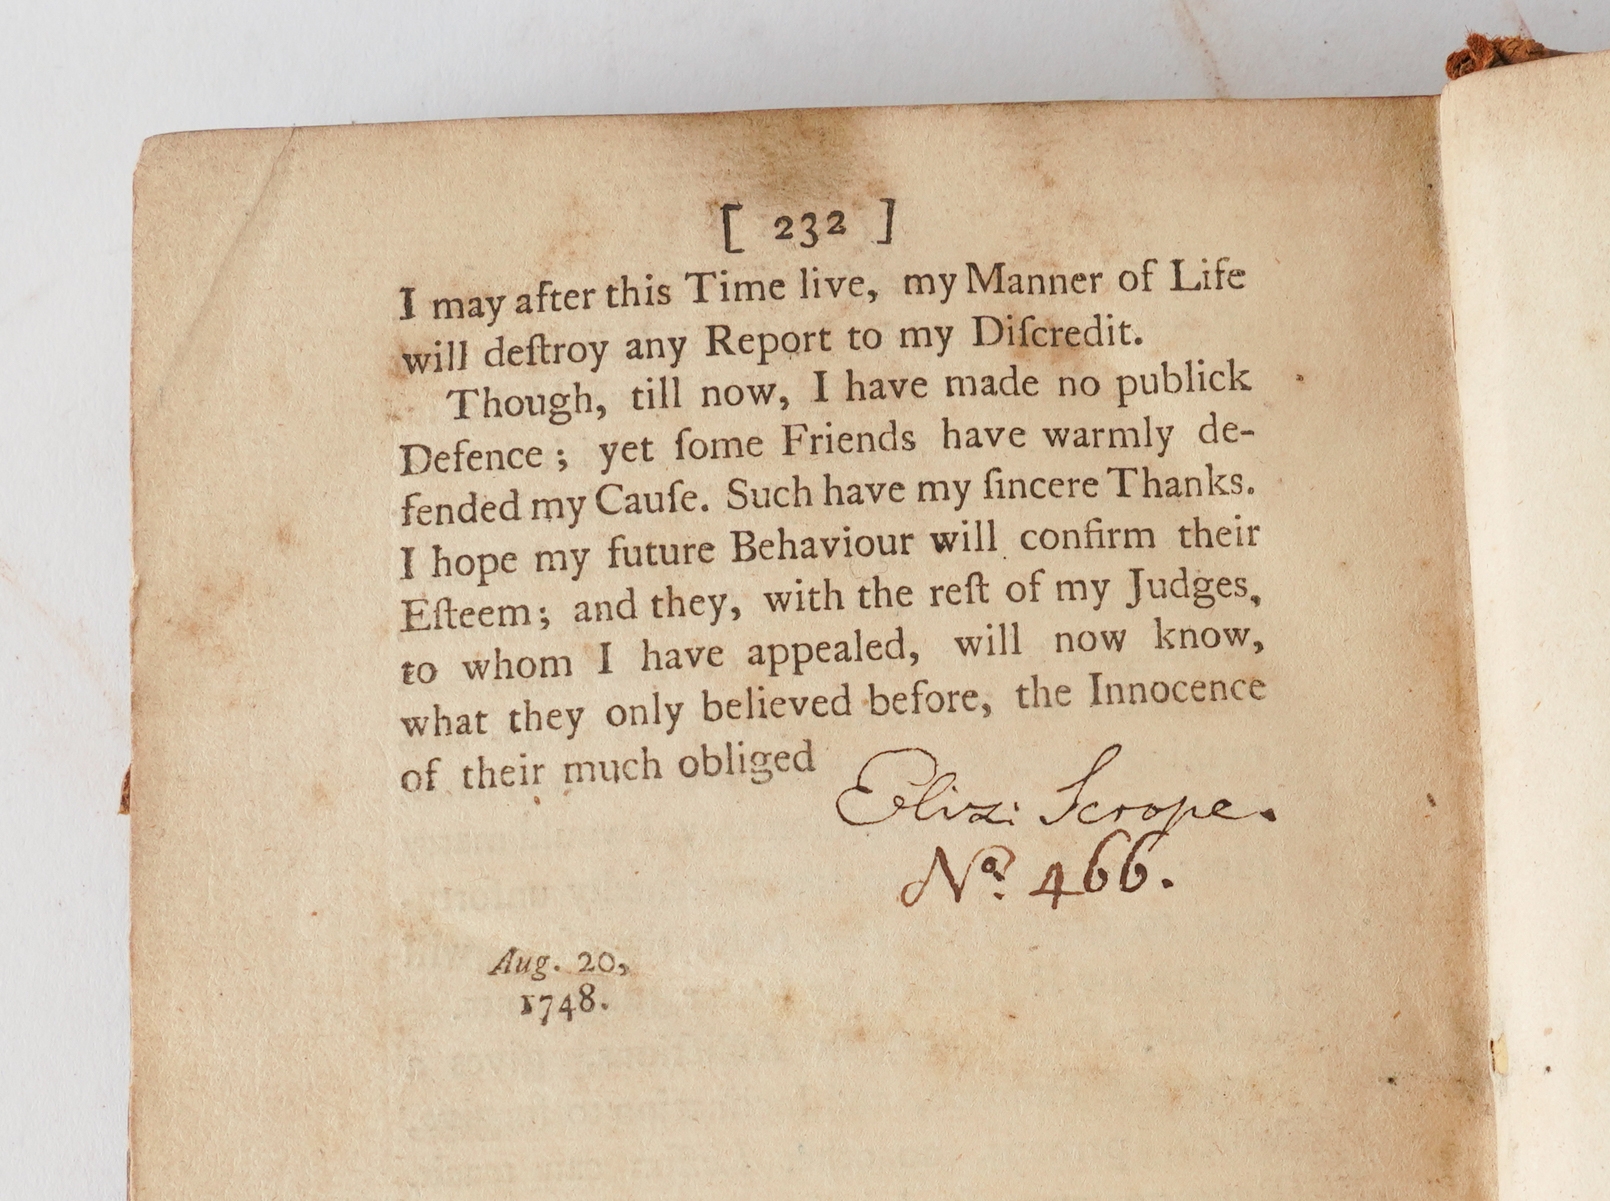 [ 232 ]
I may after this Time live, my Manner of Life
will deſtroy any Report to my Diſcredit.
Though, till now, I have made no publick
Defence ; yet ſome Friends have warmly de-
fended my Cauſe. Such have my ſincere Thanks.
I hope my future Behaviour will confirm their
Eſteem; and they, with the reſt of my Judges,
to whom I have appealed, will now know,
what they only believed before, the Innocence
of their much obliged
Eliz: Scrope.
No. 466.
Aug. 20,
1748.